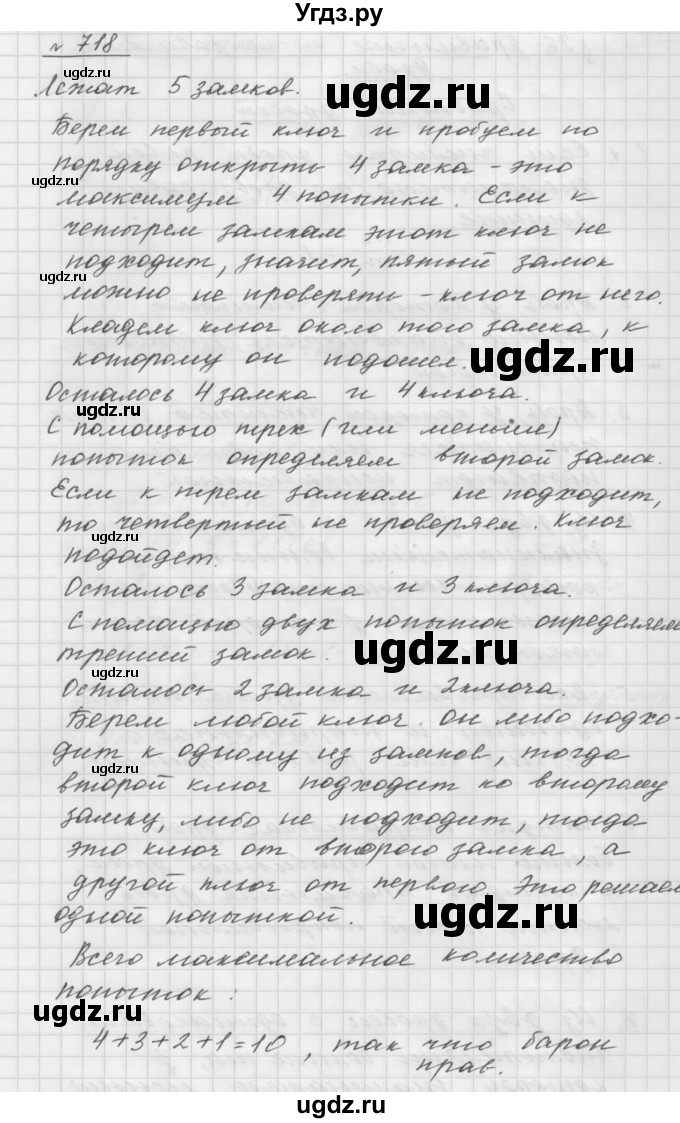 Угдз.ру
№ 718
Лежат 5 замков.
Берем первый ключ и пробуем по
порядку открыть 4 замка - это
максимум 4 попытки. Если к
четырем замкам этот ключ не
подходит, значит, пятый замок
можно не проверять - ключ от него.
Кладем ключ около того замка, к
которому он подошел.
Осталось 4 замка и 4 ключа.
С помощью трех (или меньше)
попыток определяем второй замок.
Если к трем замкам не подходит,
то четвертый не проверяем. Ключ
подойдет.
Осталось 3 замка и 3 ключа.
С помощью двух попыток определяем
третий замок.
Осталось 2 замка и 2 ключа.
Берем любой ключ. Он либо подхо-
дит к одному из замков, тогда
второй ключ подходит ко второму
замку, либо не подходит, тогда
это ключ от второго замка, а
другой ключ от первого. Это решаем
одной попыткой.
Всего максимальное количество
попыток:
4+3+2+1=10, так что барон
прав.
ugdz.ru
ugdz.ru
ugdz.ru
ugdz.ru
ugdz.ru
ugdz.ru
ugdz.ru
ugdz.ru
ugdz.ru
ugdz.ru
ugdz.ru
ugdz.ru
ugdz.ru